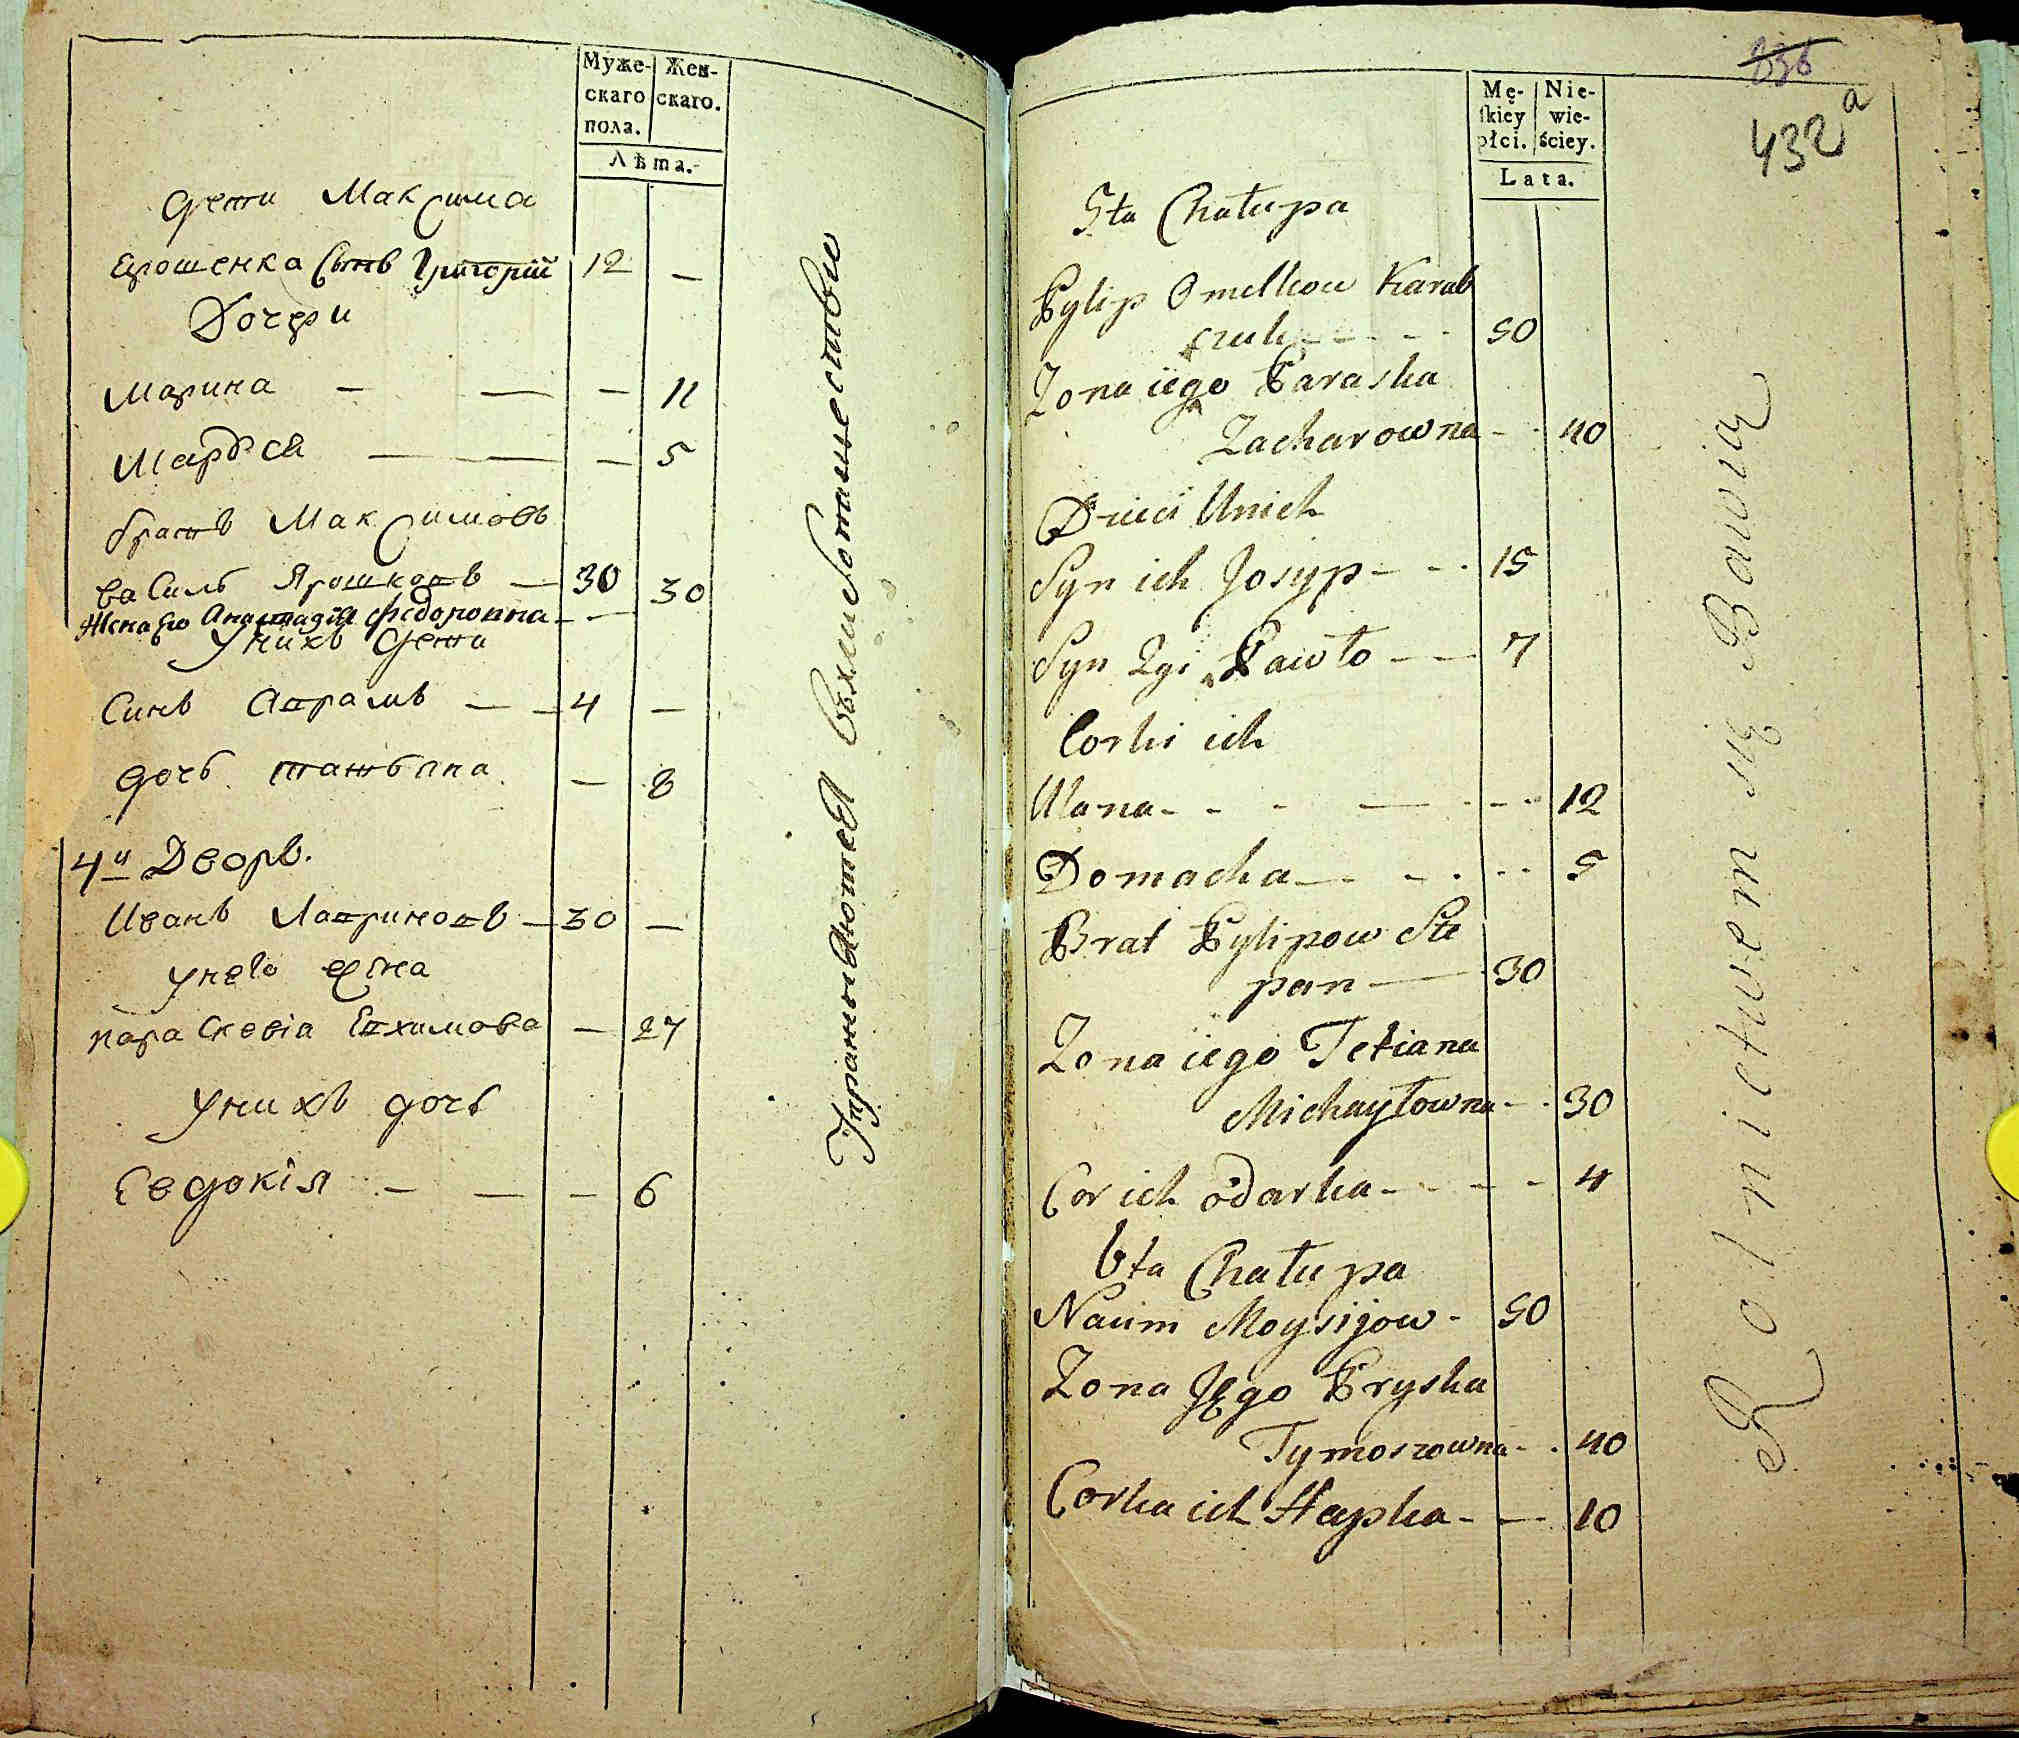 Муже- Жен-
скаго скаго.
пола.
Лѣта.
дети Максима
Ерошенка Сынъ Григорій 12 —
Дочери
Марина — — — 11
Марфа — — — 5
братъ Максимовъ
Василь Ярошковъ — 30 30
Жена Его Анастадія Федоровна — —
Унихъ дети
Синъ Аврамъ — — 4 —
дочь татьяна — 8
4й Дворъ.
Иванъ Лавриновъ — 30 —
унего жена
параскевіа Евхимова — 27
унихъ дочь
Евдокія — — — 6
Упражняются въхлибопашество
Mę- Nie-
skiey wie-
płci. ściey.
Lata.
836
432 a
5ta Chałupa
Pylip Omelkow Karab
czuk - - - - 50
Zona iego Paraska
Zacharowna - - 40
Dzieci Unich
Syn ich Josyp - - - 15
Syn 2gi Pawło — — 7
Corki ich
Ulana - - - — - - - 12
Domacha — - - - - - 5
Brat Pylipow Ste
pan — 30
Zona iego Tetiana
Michayłowna - - 30
Cor ich odarka - - - - - 4
6ta Chałupa
Naum Moysijow - 50
Zona Jego Pryska
Tymoszowna - - 40
Corka ich Hapka - — - 10
Rolnictwem się Bawią